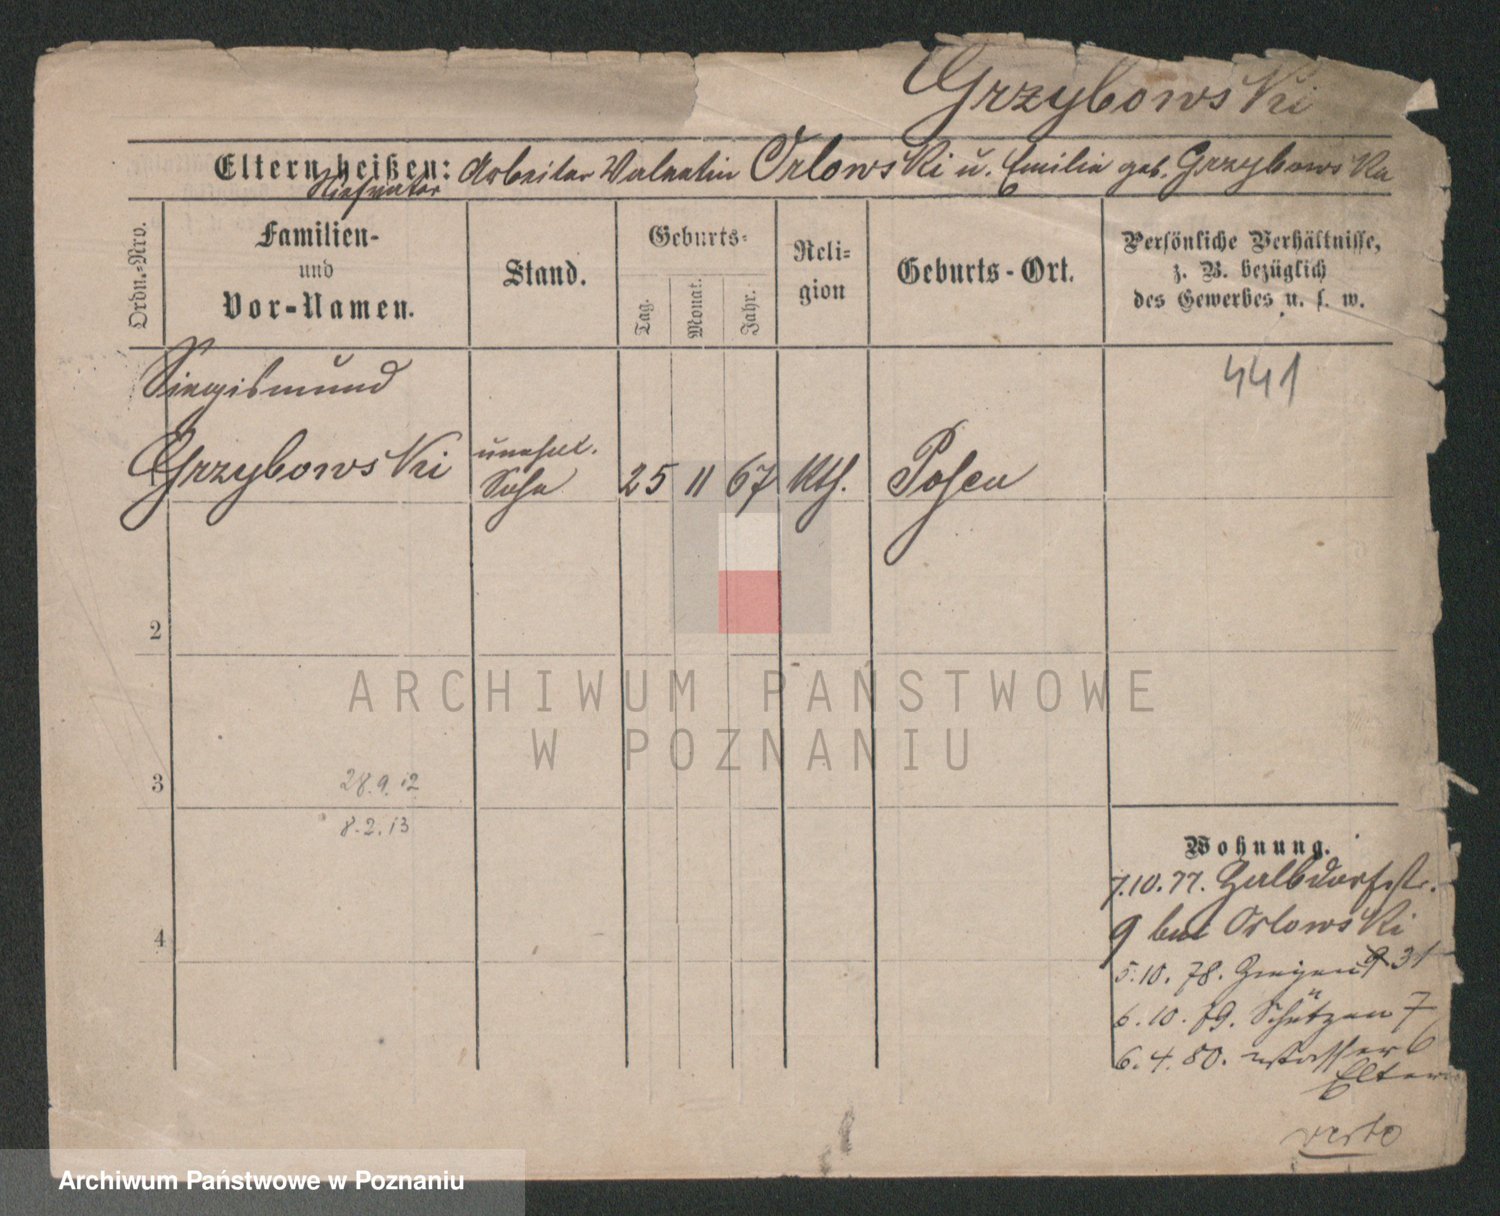 Grzybowski
Eltern heißen: Arbeiter Valentin Orlowski u. Emilie geb. Grzybowska
Stiefvater
Ordn.-Nro.
Familien-
und
Vor-Namen.
Stand.
Geburts-
Tag.
Monat.
Jahr.
Reli-
gion
Geburts-Ort.
Persönliche Verhältnisse,
z. B. bezüglich
des Gewerbes u. s. w.
Siegismund
441
Grzybowski
unehel.
Sohn
25 11 67 kth. Posen
2
3
28.9.12
8.2.13
4
Wohnung.
7.10.77. Halbdorfstr.
9 bei Orlowski
5.10.78. 31
6.10.79. Schützen 7
6.4.80. Wasser 6
Eltern
verto
ARCHIWUM PAŃSTWOWE
W POZNANIU
Archiwum Państwowe w Poznaniu